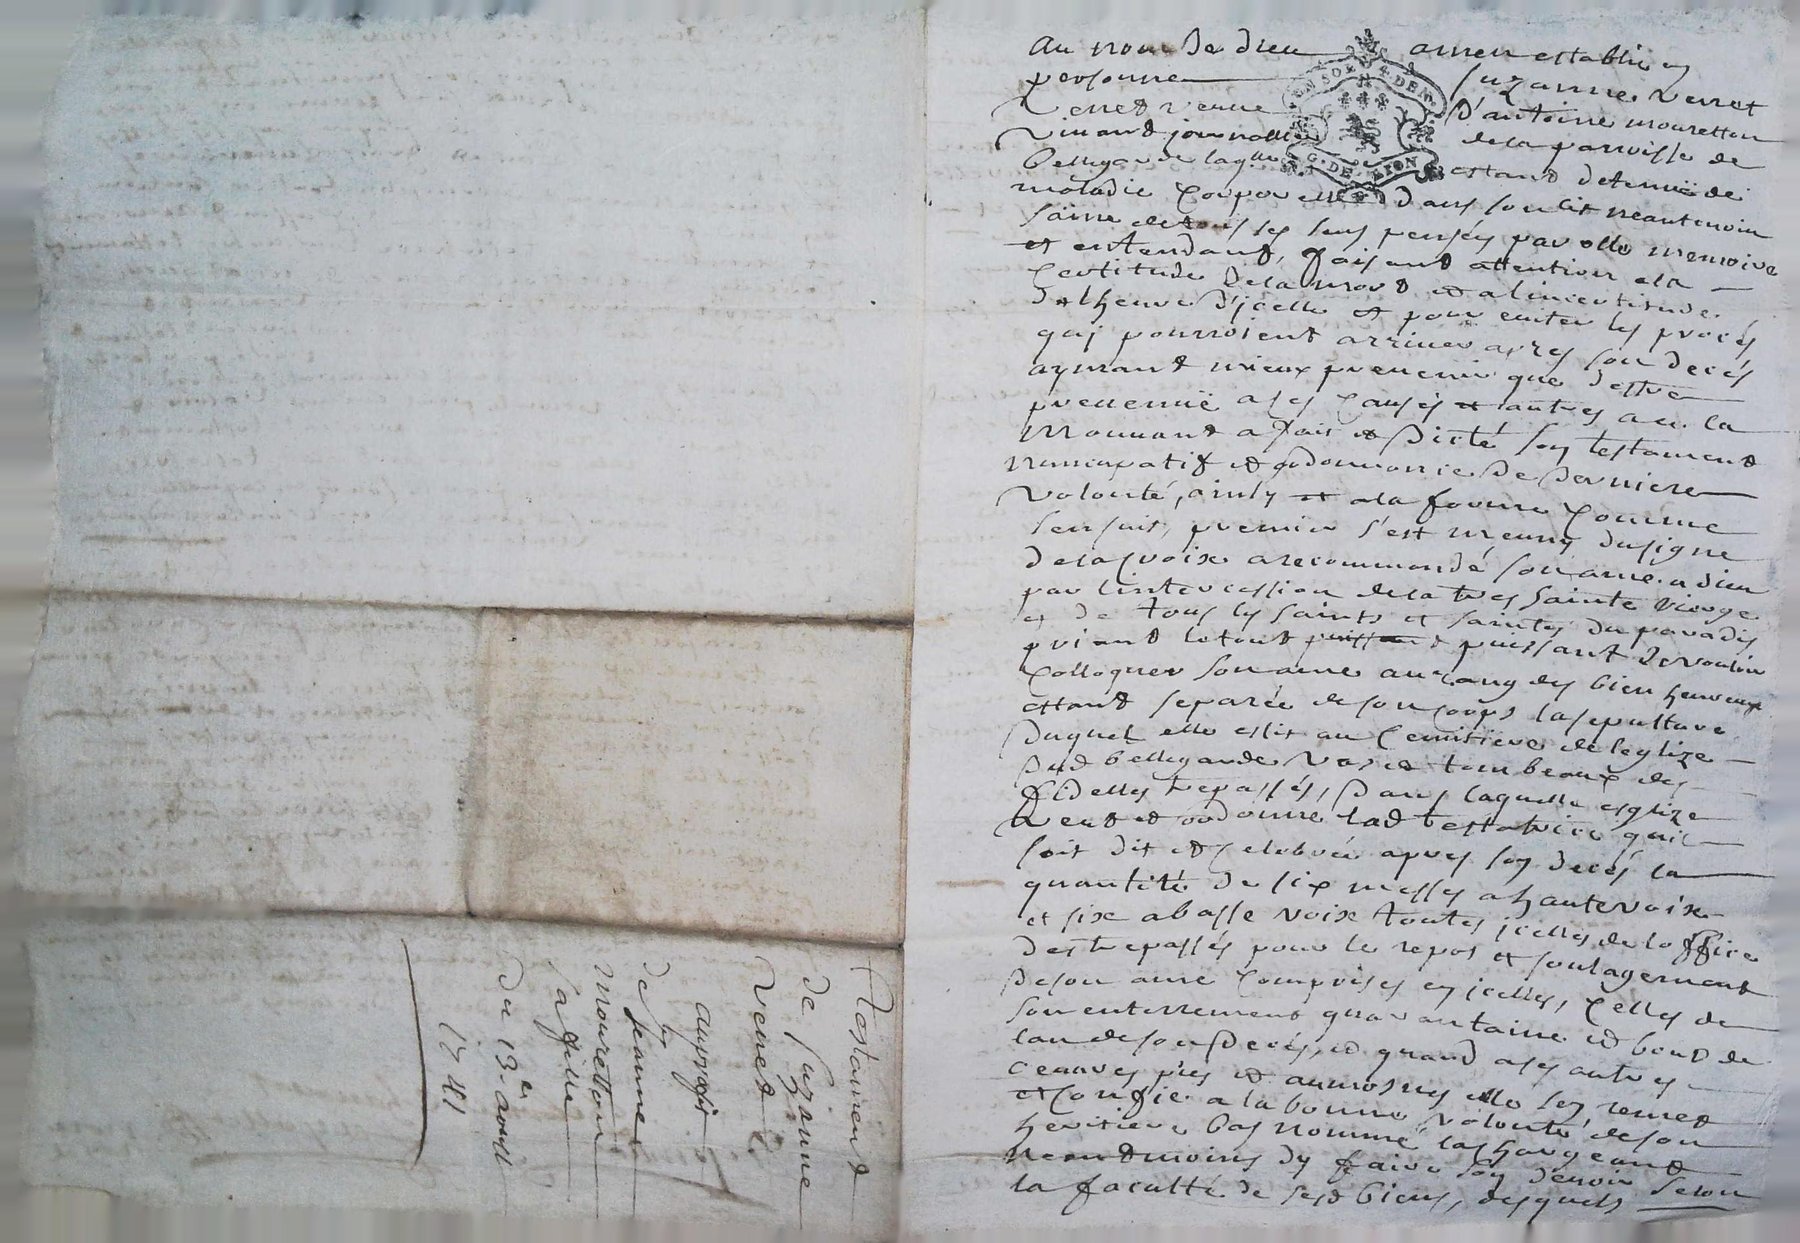 au nom de dieu amen establi en
personne Suzanne Verret
Verret veuve d'antoine mouretton
vivant journallier de la parroisse de
bellegarde laqlle estant detenuë de
maladie corporelle dans son lit neantmoin
saine de tous ses sens pensées parolle memoire
et entendant, faisant attention a la
certitude de la mort et a l'incertitude
de lheure d'icelle et pour eviter les procés
quj pourroient arriver apres son decés
aymant mieux prevenir que d'estre
prevenuë a ses causes et autres a ce la
mouvant a fait et dicté son testament
nuncupatif et ordonnance de derniere
volonté, ainsy et a la forme comme
sensuit, premier s'est meuny du signe
de la croix a recommandé son ame a dieu
par l'intercession de la tres sainte vierge
et de tous les saints et saintes du paradis
priant le tout puissant puissant de vouloir
colloquer son ame au rang des bien heureux
estant separée de son corps la sepulture
duquel elle eslit au cemitiere de leglize
dud bellegarde vas et tombeaux des
fidelles trepassés, dans laquelle esglize
veut et ordonne lad testatrice quil
soit dit et celebrée apres son decés la
quantité de six messes a haute voix
et six a basse voix toutes jcelles de loffice
des trepassés pour le repos et soulagement
de son ame comprises en jcelles, celles de
son enterrement quarantaine et bout de
lan de son decés, et quand a ses autres
oeuvres pies et aumosnes elle sen remet
et confie a la bonne volonté de son
heritiere bas nommé la chargeant
neantmoins dy faire son devoir selon
la faculté de sesd biens, desquels
G. DE LION
Testament
de Suzanne
Verret
au proffit
de jeanne
mouretton
sa fille
du 13e avril
1741